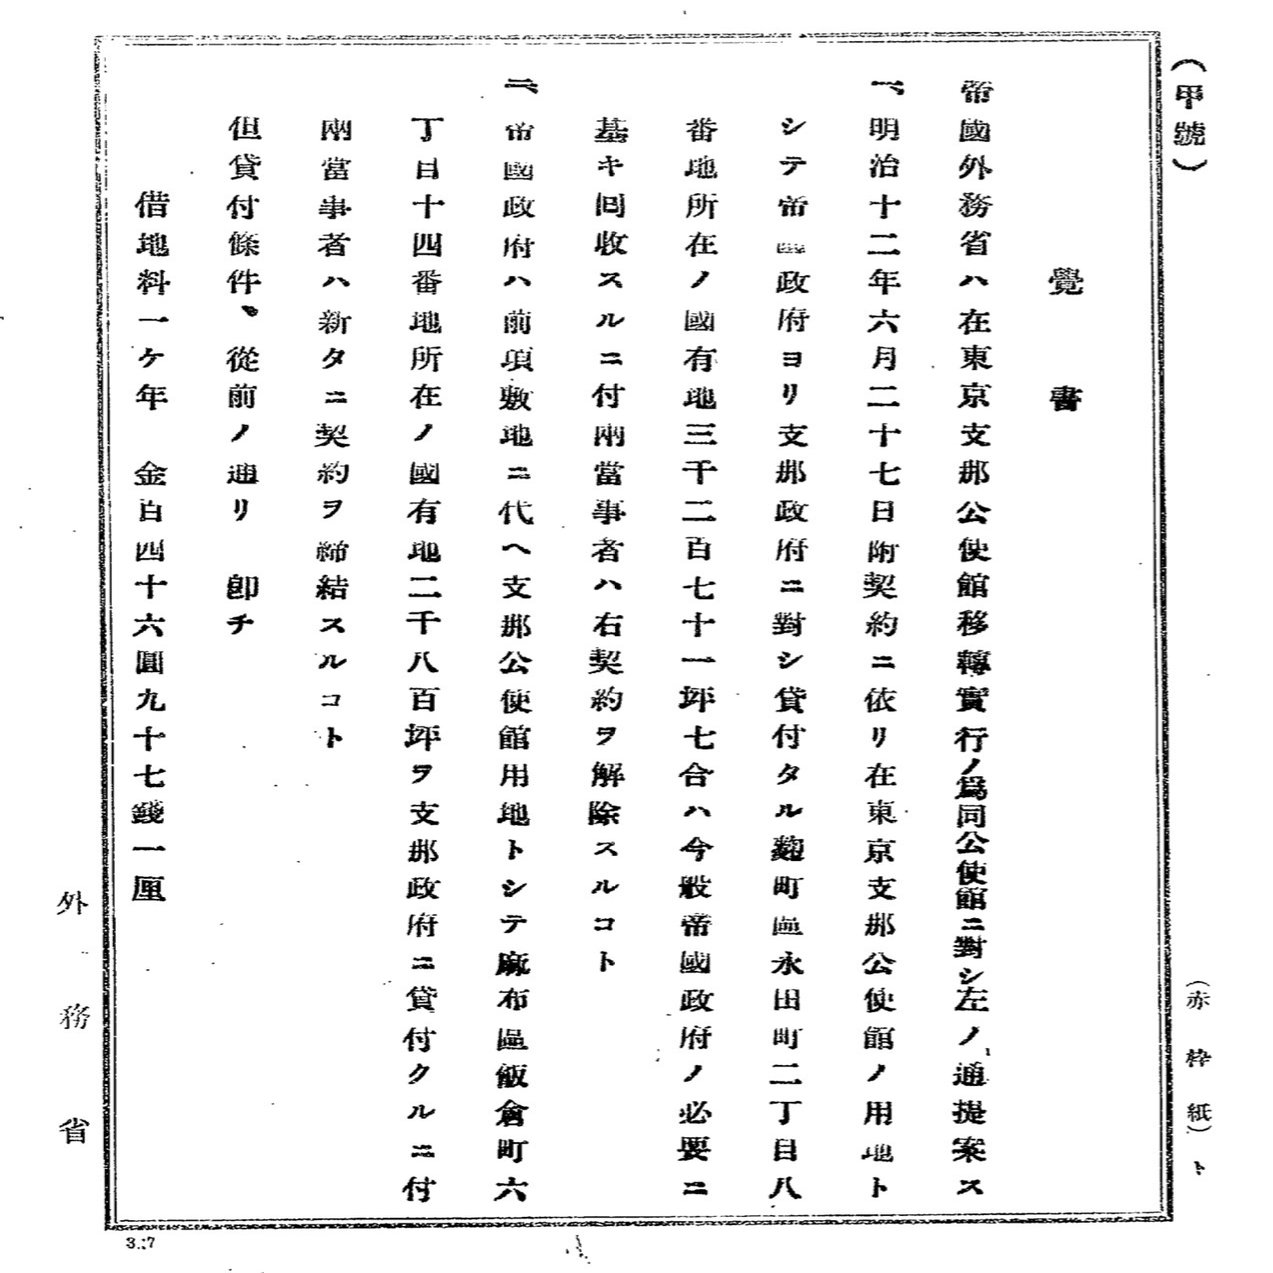 (甲號)
覺書
帝國外務省ハ在東京支那公使館移轉實行ノ爲同公使館ニ對シ左ノ通提案ス
一、明治十二年六月二十七日附契約ニ依リ在東京支那公使館ノ用地ト
シテ帝國政府ヨリ支那政府ニ對シ貸付タル麴町區永田町二丁目八
番地所在ノ國有地三千二百七十一坪七合ハ今般帝國政府ノ必要ニ
基キ囘收スルニ付兩當事者ハ右契約ヲ解除スルコト
二、帝國政府ハ前項敷地ニ代ヘ支那公使館用地トシテ麻布區飯倉町六
丁目十四番地所在ノ國有地二千八百坪ヲ支那政府ニ貸付クルニ付
兩當事者ハ新タニ契約ヲ締結スルコト
但貸付條件、從前ノ通リ 卽チ
借地料一ケ年 金百四十六圓九十七錢一厘
(赤枠紙)ト
外務省
3.7